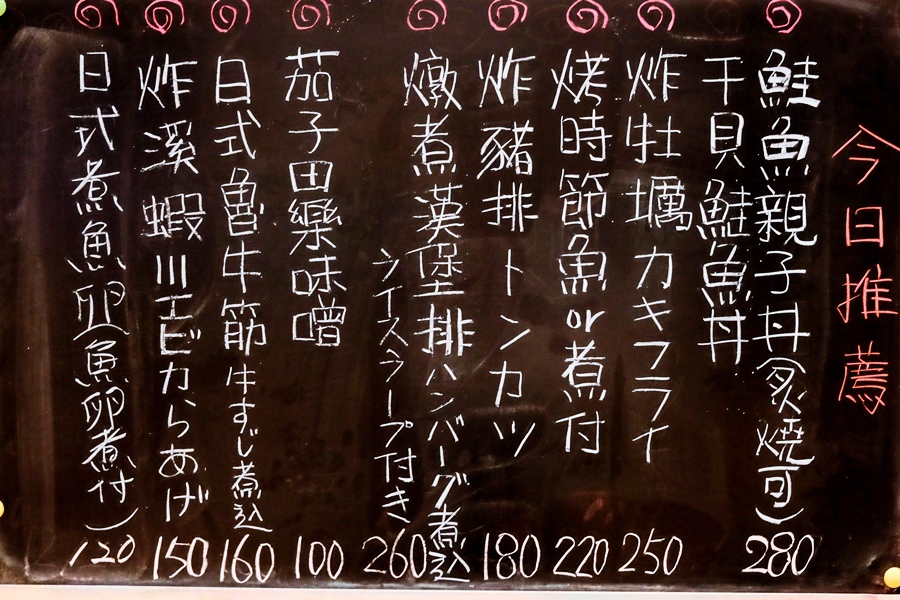 今日推薦
鮭魚親子丼(炙燒可) 280
干貝鮭魚丼
炸牡蠣カキフライ 250
烤時節魚or煮付 220
炸豬排トンカツ 180
燉煮漢堡排ハンバーグ煮込 260
ライススープ付き
茄子田樂味噌 100
日式魯牛筋牛すじ煮込 160
炸溪蝦川エビからあげ 150
日式煮魚卵(魚卵煮付) 120